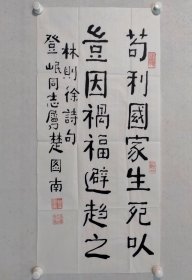 苟利國家生死以
豈因禍福避趋之
林則徐詩句
登岷同志屬楚图南